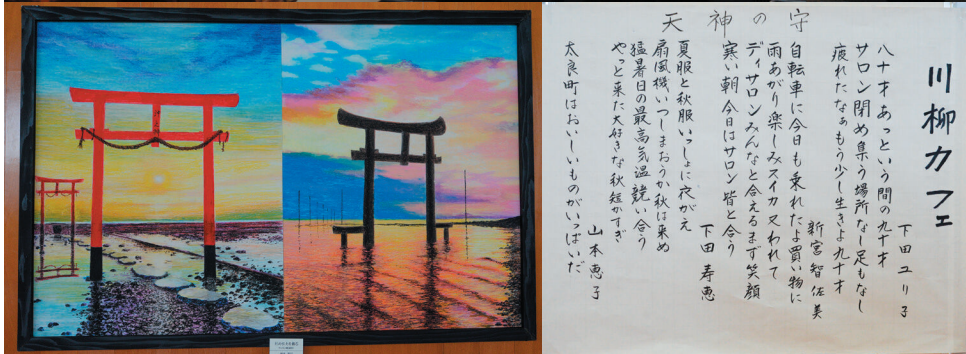 天神の守
川柳カフェ
下田ユリ子
八十才あっという間の九十才
サロン閉め集う場所なし足もなし
疲れたなぁもう少し生きよ九十才
新宮智佐美
自転車に今日も乗れたよ買い物に
雨あがり楽しみスイカ又われて
ディサロンみんなと合えるまず笑顔
寒い朝今日はサロン皆と合う
下田寿恵
夏服と秋服いっしょに夜がえ
扇風機いつしまおうか秋は来め
猛暑日の最高気温競い合う
やっと来た大好きな秋短かすぎ
山本恵子
太良町はおいしいものがいっぱいだ